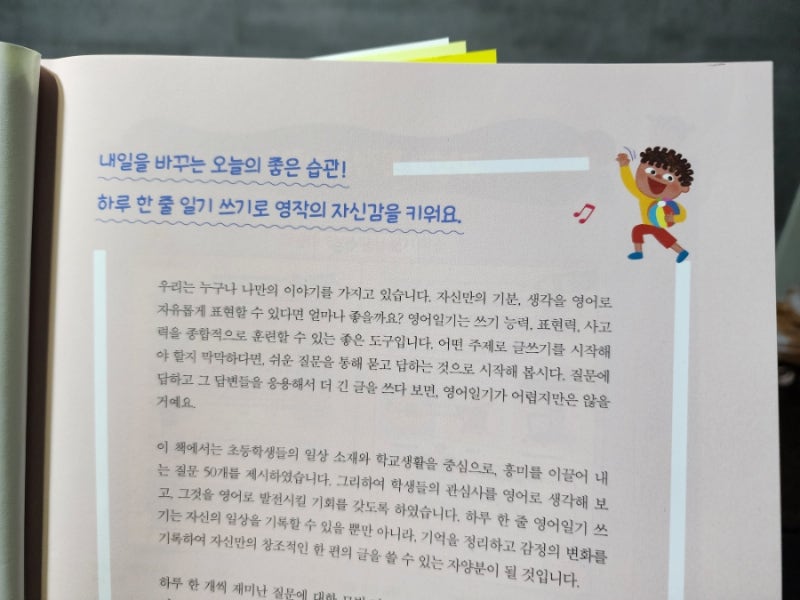 내일을 바꾸는 오늘의 좋은 습관!
하루 한 줄 일기 쓰기로 영작의 자신감을 키워요.
우리는 누구나 나만의 이야기를 가지고 있습니다. 자신만의 기분, 생각을 영어로
자유롭게 표현할 수 있다면 얼마나 좋을까요? 영어일기는 쓰기 능력, 표현력, 사고
력을 종합적으로 훈련할 수 있는 좋은 도구입니다. 어떤 주제로 글쓰기를 시작해
야 할지 막막하다면, 쉬운 질문을 통해 묻고 답하는 것으로 시작해 봅시다. 질문에
답하고 그 답변들을 응용해서 더 긴 글을 쓰다 보면, 영어일기가 어렵지만은 않을
거예요.
이 책에서는 초등학생들의 일상 소재와 학교생활을 중심으로, 흥미를 이끌어 내
는 질문 50개를 제시하였습니다. 그리하여 학생들의 관심사를 영어로 생각해 보
고, 그것을 영어로 발전시킬 기회를 갖도록 하였습니다. 하루 한 줄 영어일기 쓰
기는 자신의 일상을 기록할 수 있을 뿐만 아니라, 기억을 정리하고 감정의 변화를
기록하여 자신만의 창조적인 한 편의 글을 쓸 수 있는 자양분이 될 것입니다.
하루 한 개씩 재미난 질문에 대한